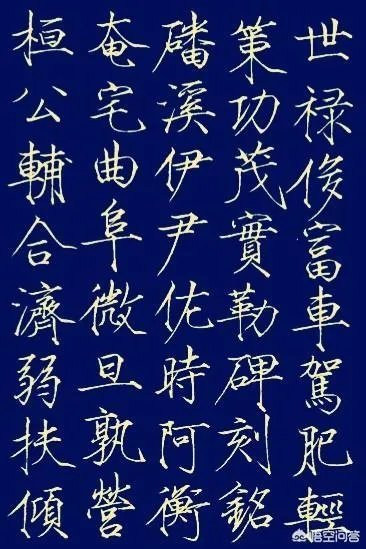 世禄侈富車駕肥輕
策功茂實勒碑刻銘
磻溪伊尹佐時阿衡
奄宅曲阜微旦孰營
桓公輔合濟弱扶傾
悟空问答